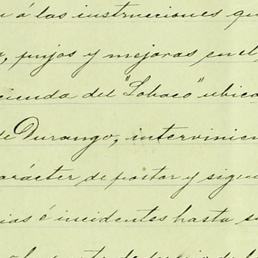 á las instrucciones qu
, pujos y mejoras en el
cienda del "Lobaco" ubica
de Durango, intervinien
carácter de postor y sigui
ias é incidentes hasta s